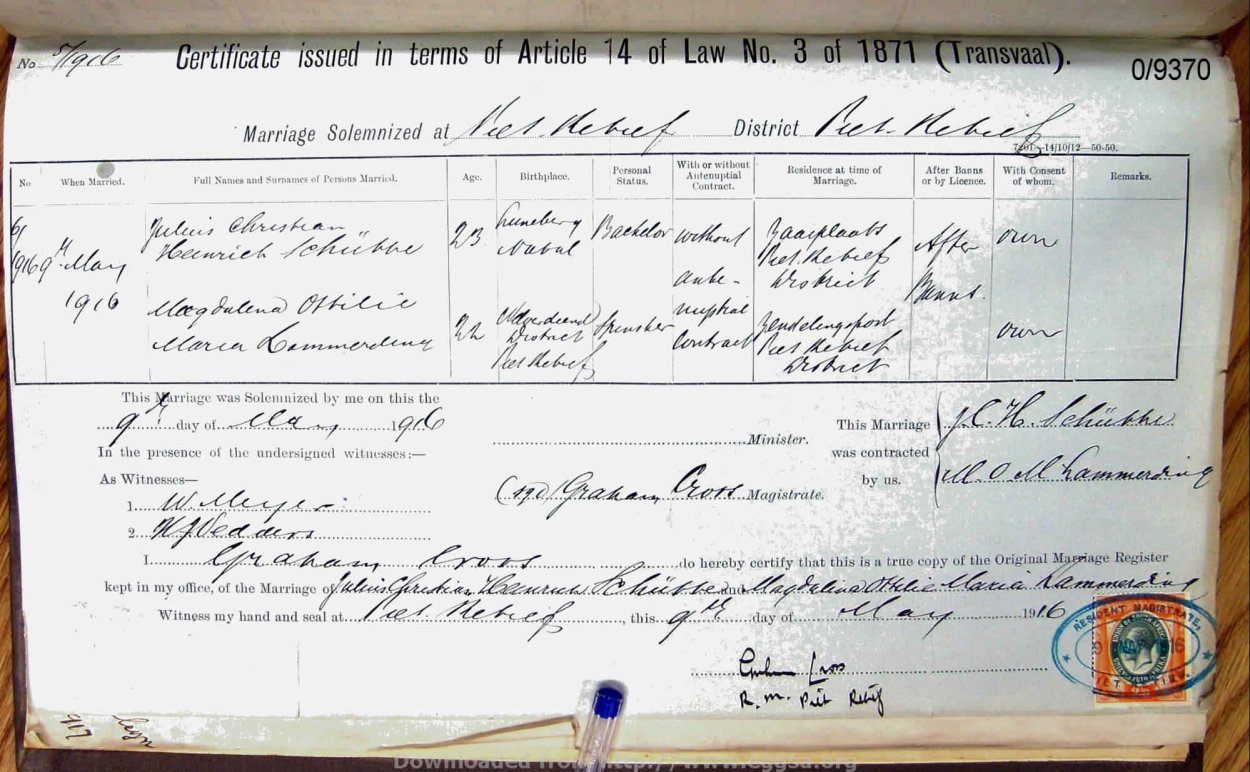 No 5/1916 Certificate issued in terms of Article 14 of Law No. 3 of 1871 (Transvaal).
0/9370
Marriage Solemnized at Piet Retief District Piet Retief
14/10/12—50-50.
No When Married. Full Names and Surnames of Persons Married. Age. Birthplace. Personal Status. With or without Antenuptial Contract. Residence at time of Marriage. After Banns or by Licence. With Consent of whom. Remarks.
9th May 1916 Julius Christian Heinrich Schütte 23 Luneberg Natal Bachelor without ante-nuptial Contract Zaaiplaats Piet Retief District After Banns own
Magdalena Ottilie Maria Lammerding 22 District Piet Retief Spinster Zendelingspost Piet Retief District own
This Marriage was Solemnized by me on this the
9th day of May 1916
Minister.
This Marriage was contracted by us.
J. C. H. Schütte
M O M Lammerding
In the presence of the undersigned witnesses:—
As Witnesses—
(sgd) Graham Cross Magistrate.
1. W. Meyer
2. Vedders
I Graham Cross do hereby certify that this is a true copy of the Original Marriage Register
kept in my office, of the Marriage of Julius Christian Heinrich Schütte and Magdalena Ottilie Maria Lammerding
Witness my hand and seal at Piet Retief, this 9th day of May 1916
RESIDENT MAGISTRATE,
Graham Cross
R. M. Piet Retief
917
Downloaded from http://www.eggsa.org